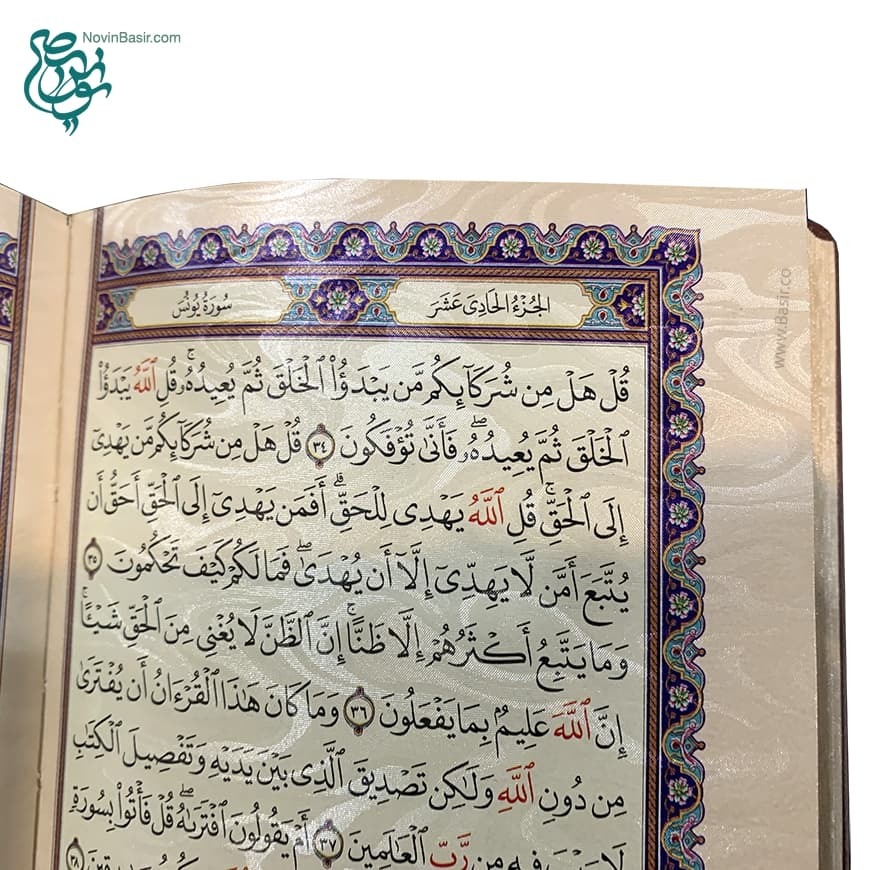 NovinBasir.com
www.iBasir.co
الجُزْءُ الحَادِى عَشَرَ
سُورَةُ يُونُسَ
قُلْ هَلْ مِن شُرَكَآئِكُم مَّن يَبْدَؤُا۟ ٱلْخَلْقَ ثُمَّ يُعِيدُهُۥ ۚ قُلِ ٱللَّهُ يَبْدَؤُا۟
ٱلْخَلْقَ ثُمَّ يُعِيدُهُۥ ۖ فَأَنَّىٰ تُؤْفَكُونَ ٣٤ قُلْ هَلْ مِن شُرَكَآئِكُم مَّن يَهْدِىٓ
إِلَى ٱلْحَقِّ ۚ قُلِ ٱللَّهُ يَهْدِى لِلْحَقِّ ۗ أَفَمَن يَهْدِىٓ إِلَى ٱلْحَقِّ أَحَقُّ أَن
يُتَّبَعَ أَمَّن لَّا يَهِدِّىٓ إِلَّآ أَن يُهْدَىٰ ۖ فَمَا لَكُمْ كَيْفَ تَحْكُمُونَ ٣٥
وَمَا يَتَّبِعُ أَكْثَرُهُمْ إِلَّا ظَنًّا ۚ إِنَّ ٱلظَّنَّ لَا يُغْنِى مِنَ ٱلْحَقِّ شَيْـًٔا ۚ
إِنَّ ٱللَّهَ عَلِيمٌۢ بِمَا يَفْعَلُونَ ٣٦ وَمَا كَانَ هَٰذَا ٱلْقُرْءَانُ أَن يُفْتَرَىٰ
مِن دُونِ ٱللَّهِ وَلَٰكِن تَصْدِيقَ ٱلَّذِى بَيْنَ يَدَيْهِ وَتَفْصِيلَ ٱلْكِتَٰبِ
لَا رَيْبَ فِيهِ مِن رَّبِّ ٱلْعَالَمِينَ ٣٧ أَمْ يَقُولُونَ ٱفْتَرَىٰهُ ۖ قُلْ فَأْتُوا۟ بِسُورَةٍ
٣٨